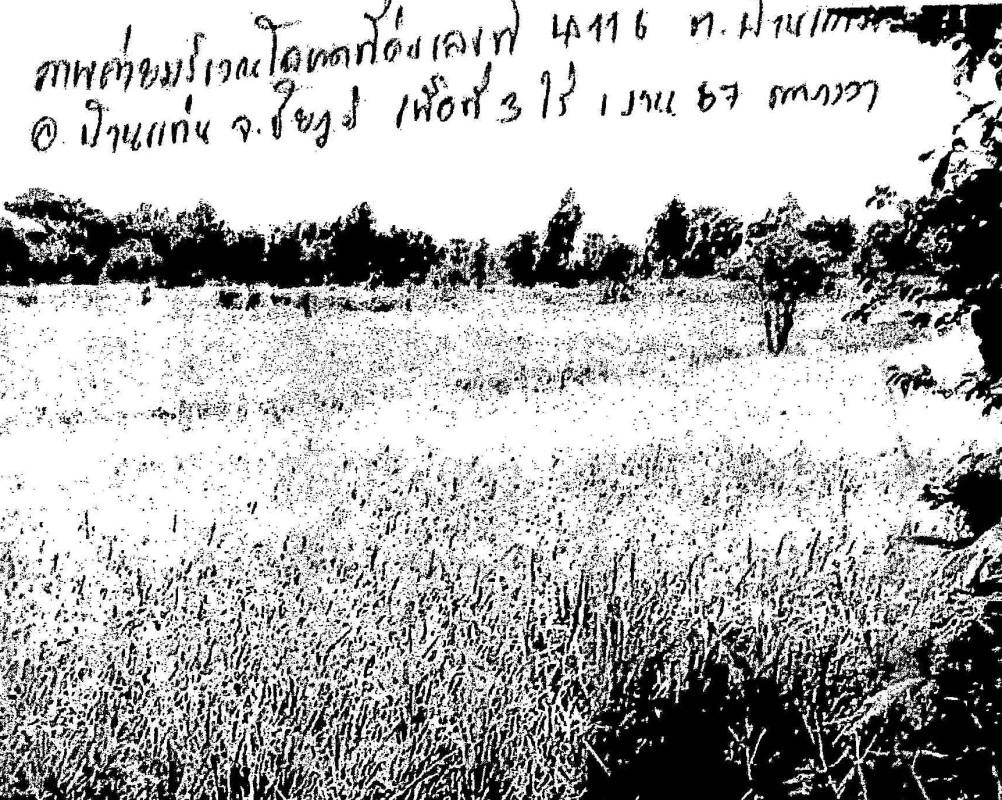 ภาพถ่ายบริเวณโฉนดที่ดินเลขที่ 4116 ต.บ้านแท่น
อ.บ้านแท่น จ.ชัยภูมิ เนื้อที่ 3 ไร่ 1 งาน 87 ตารางวา